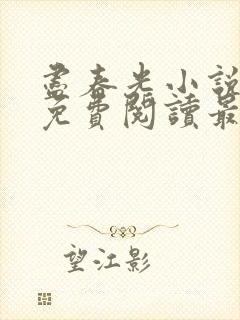 盡春光小說
免費閱讀最
望江影